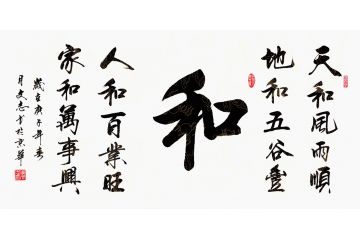 天和風雨順
地和五谷豐
和
人和百業旺
家和萬事興
歲在庚子年秀
月文志書於京華